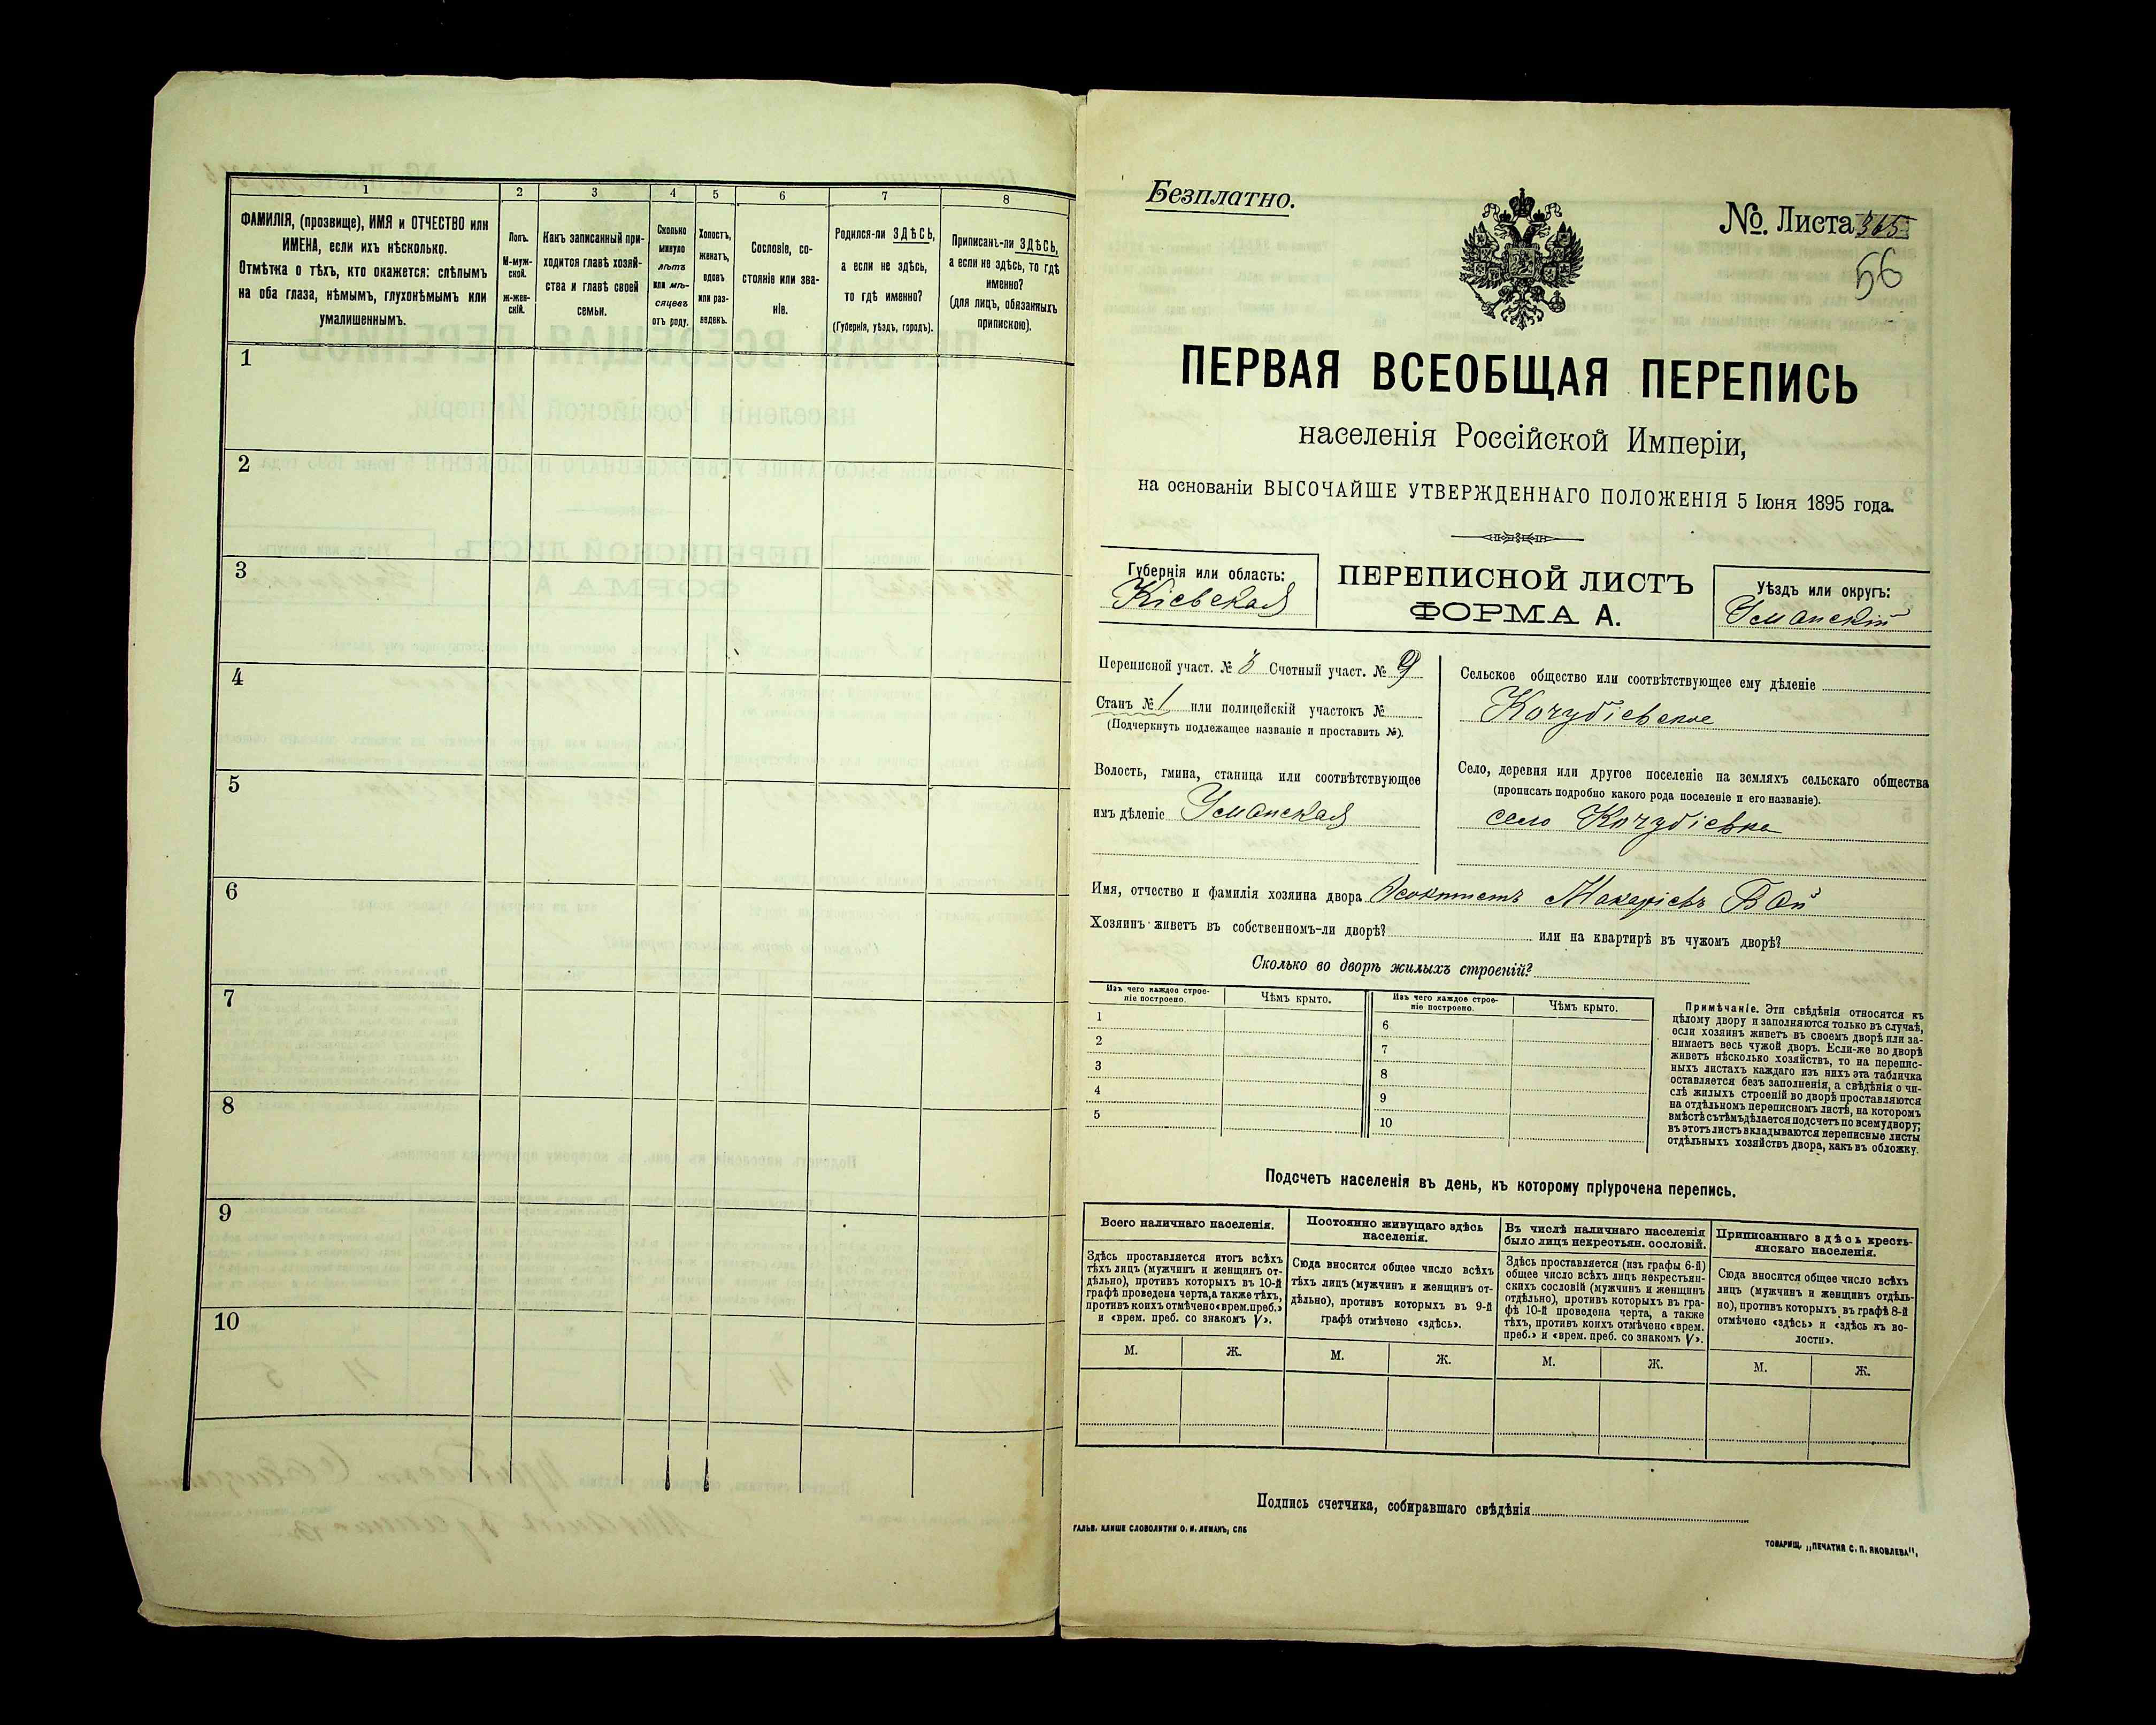 1
2
3
4
5
6
7
8
ФАМИЛІЯ, (прозвище), ИМЯ и ОТЧЕСТВО или
ИМЕНА, если ихъ нѣсколько.
Отмѣтка о тѣхъ, кто окажется: слѣпымъ
на оба глаза, нѣмымъ, глухонѣмымъ или
умалишеннымъ.
Полъ.
М-муж-
ской.
ж-жен-
скій.
Какъ записанный при-
ходится главѣ хозяй-
ства и главѣ своей
семьи.
Сколько
минуло
лѣтъ
или мѣ-
сяцевъ
отъ роду.
Холостъ,
женатъ,
вдовъ
или раз-
веденъ.
Сословіе, со-
стояніе или зва-
ніе.
Родился-ли ЗДѢСЬ,
а если не здѣсь,
то гдѣ именно?
(Губернія, уѣздъ, городъ).
Приписанъ-ли ЗДѢСЬ,
а если не здѣсь, то гдѣ
именно?
(для лицъ, обязанныхъ
припискою).
1
2
3
4
5
6
7
8
9
10
Безплатно.
№. Листа 365
56
ПЕРВАЯ ВСЕОБЩАЯ ПЕРЕПИСЬ
населенія Россійской Имперіи,
на основаніи ВЫСОЧАЙШЕ УТВЕРЖДЕННАГО ПОЛОЖЕНІЯ 5 Іюня 1895 года.
Губернія или область:
Кіевская
ПЕРЕПИСНОЙ ЛИСТЪ
ФОРМА А.
Уѣздъ или округъ:
Уманскій
Переписной участ. № 3 Счетный участ. № 9
Станъ № 1 или полицейскій участокъ №
(Подчеркнуть подлежащее названіе и проставить №).
Волость, гмина, станица или соотвѣтствующее
имъ дѣленіе Уманская
Сельское общество или соотвѣтствующее ему дѣленіе
Кочубіевское
Село, деревня или другое поселеніе на земляхъ сельскаго общества
(прописать подробно какого рода поселеніе и его названіе).
село Кочубіевка
Имя, отчество и фамилія хозяина двора Феоктистъ Макаріевъ Бой
Хозяинъ живетъ въ собственномъ-ли дворѣ? или на квартирѣ въ чужомъ дворѣ?
Сколько во дворѣ жилыхъ строеній?
Изъ чего каждое строе-
ніе построено.
Чѣмъ крыто.
Изъ чего каждое строе-
ніе построено.
Чѣмъ крыто.
1
2
3
4
5
6
7
8
9
10
Примѣчаніе. Эти свѣдѣнія относятся къ
цѣлому двору и заполняются только въ случаѣ,
если хозяинъ живетъ въ своемъ дворѣ или за-
нимаетъ весь чужой дворъ. Если-же во дворѣ
живетъ нѣсколько хозяйствъ, то на перепис-
ныхъ листахъ каждаго изъ нихъ эта табличка
оставляется безъ заполненія, а свѣдѣнія о чи-
слѣ жилыхъ строеній во дворѣ проставляются
на отдѣльномъ переписномъ листѣ, на которомъ
вмѣстѣ съ тѣмъ дѣлается подсчетъ по всему двору;
въ этотъ листъ вкладываются переписные листы
отдѣльныхъ хозяйствъ двора, какъ въ обложку.
Подсчетъ населенія въ день, къ которому пріурочена перепись.
Всего наличнаго населенія.
Здѣсь проставляется итогъ всѣхъ
тѣхъ лицъ (мужчинъ и женщинъ от-
дѣльно), противъ которыхъ въ 10-й
графѣ проведена черта, а также тѣхъ,
противъ коихъ отмѣчено «врем. преб.»
и «врем. преб. со знакомъ V».
Постоянно живущаго здѣсь
населенія.
Сюда вносится общее число всѣхъ
тѣхъ лицъ (мужчинъ и женщинъ от-
дѣльно), противъ которыхъ въ 9-й
графѣ отмѣчено «здѣсь».
Въ числѣ наличнаго населенія
было лицъ некрестьян. сословій.
Здѣсь проставляется (изъ графы 6-й)
общее число всѣхъ лицъ некрестьян-
скихъ сословій (мужчинъ и женщинъ
отдѣльно), противъ которыхъ въ гра-
фѣ 10-й проведена черта, а также
тѣхъ, противъ коихъ отмѣчено «врем.
преб.» и «врем. преб. со знакомъ V».
Приписаннаго здѣсь кресть-
янскаго населенія.
Сюда вносится общее число всѣхъ
лицъ (мужчинъ и женщинъ отдѣль-
но), противъ которыхъ въ графѣ 8-й
отмѣчено «здѣсь» и «здѣсь къ во-
лости».
М.
Ж.
М.
Ж.
М.
Ж.
М.
Ж.
Подпись счетчика, собиравшаго свѣдѣнія
ГАЛЬВ. КЛИШЕ СЛОВОЛИТНИ О. И. ЛЕМАНЪ, СПБ
ТОВАРИЩ. „ПЕЧАТНЯ С. П. ЯКОВЛЕВА",